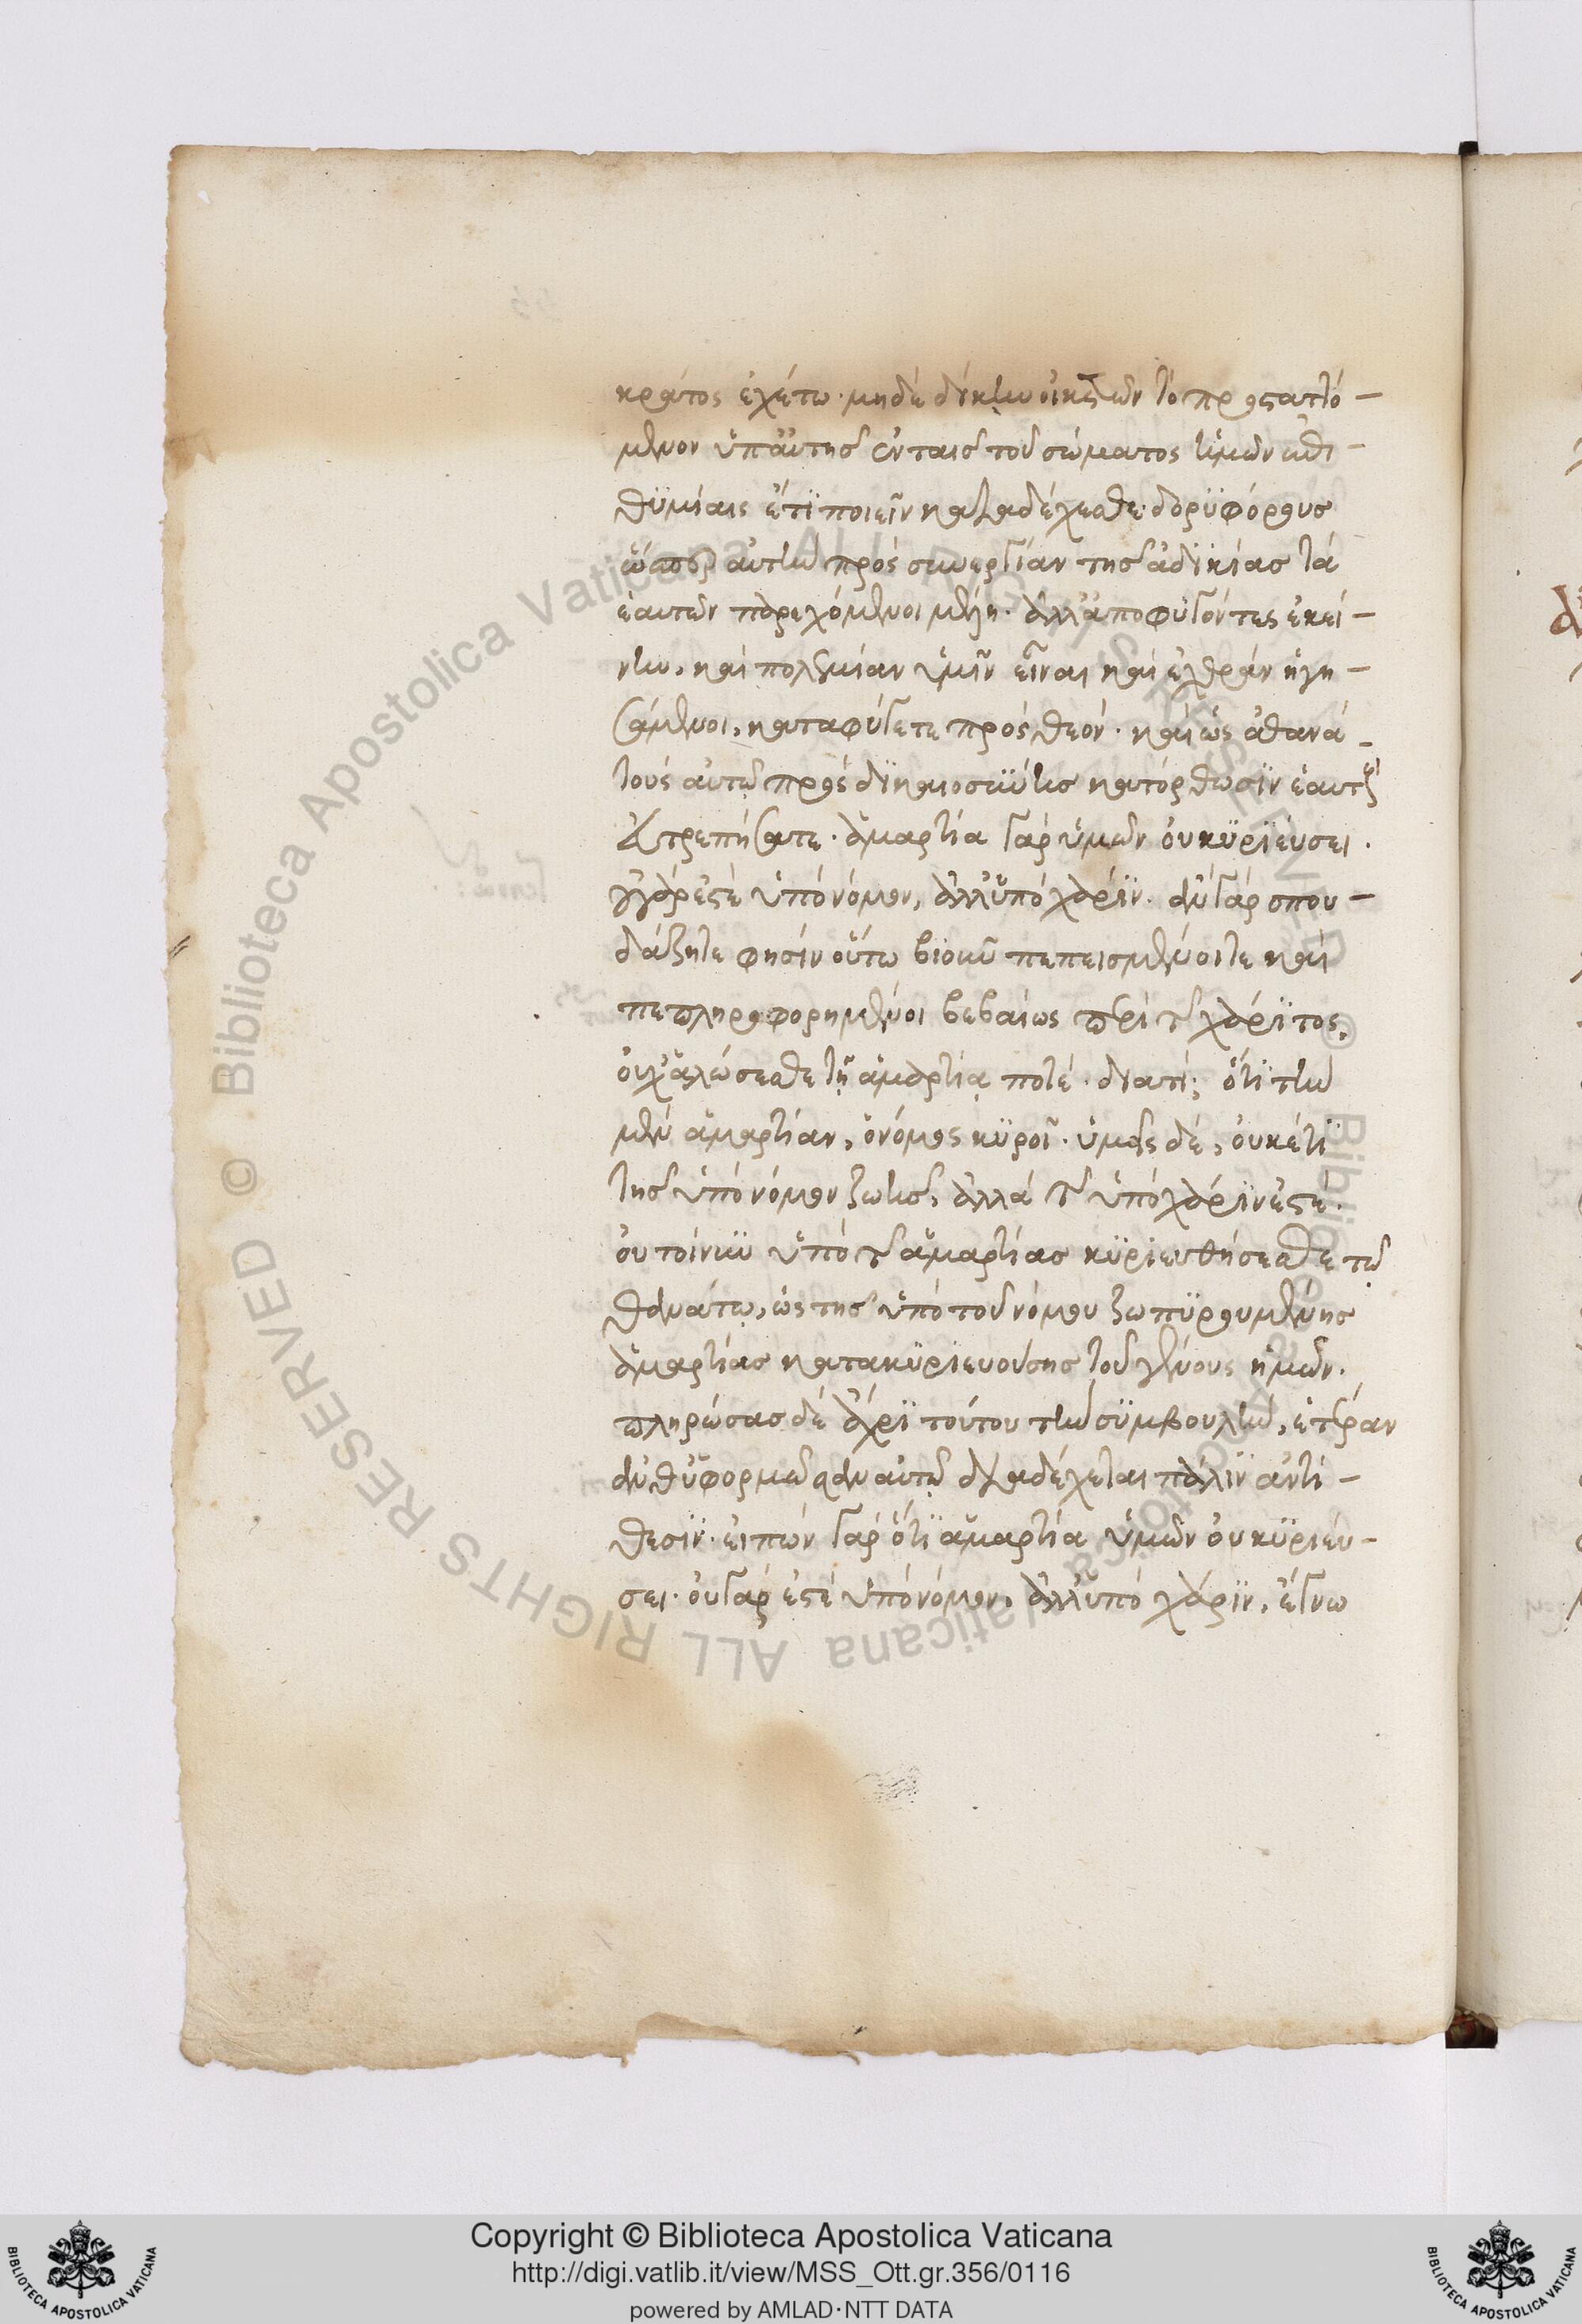 κράτος ἐχέτω· μηδὲ δίκην οἰκετῶν τὸ προσταττό-
μενον ὑπ' αὐτῆς ἐν ταῖς τοῦ σώματος ὑμῶν ἐπι-
θυμίαις ἔτι ποιεῖν καταδέχεσθε· δορυφόρους
ὥσπερ αὐτὴν πρὸς συνεργίαν τῆς ἀδικίας τὰ
ἑαυτῶν παρεχόμενοι μέλη· ἀλλ' ἀποφυγόντες ἐκεί-
νην, καὶ πολεμίαν ὑμῖν εἶναι καὶ ἐχθρὰν ἡγη-
σάμενοι, καταφύγετε πρὸς θεόν· καὶ ὡς ἀθανά-
τους αὐτῷ πρὸς δικαιοσύνης κατόρθωσιν ἑαυτοὺς
ἐπιτρεπήσατε· ἁμαρτία γὰρ ὑμῶν οὐ κυριεύσει·
οὐ γάρ ἐστὲ ὑπὸ νόμον, ἀλλ' ὑπὸ χάριν· ἂν γὰρ σπου-
δάζητε φησὶν οὕτω βιοῦν πεπεισμένοι τε καὶ
πεπληροφορημένοι βεβαίως περὶ τῆς χάριτος,
οὐχ ἁλώσεσθε τῇ ἁμαρτίᾳ ποτέ· διατί; ὅτι τὴν
μὲν ἁμαρτίαν, ὁ νόμος κυροῖ· ὑμεῖς δέ, οὐκέτι
τῆς ὑπὸ νόμον ζωῆς, ἀλλὰ τῆς ὑπὸ χάριν ἐστέ·
οὐ τοίνυν ὑπὸ τῆς ἁμαρτίας κυριευθήσεσθε τῷ
θανάτῳ, ὡς τῆς ὑπὸ τοῦ νόμου ζωπυρουμένης
ἁμαρτίας κατακυριευούσης τοῦ γένους ἡμῶν·
πληρώσας δὲ ἄχρι τούτου τὴν συμβουλήν, ἑτέραν
ἀνθυφορμῶσαν αὐτῷ διαδέχεται πάλιν ἀντί-
θεσιν· εἰπὼν γὰρ ὅτι ἁμαρτία ὑμῶν οὐ κυριεύ-
σει· οὐ γάρ ἐστε ὑπὸ νόμον, ἀλλ' ὑπὸ χάριν, ἔγνω
Copyright © Biblioteca Apostolica Vaticana
http://digi.vatlib.it/view/MSS_Ott.gr.356/0116
powered by AMLAD·NTT DATA